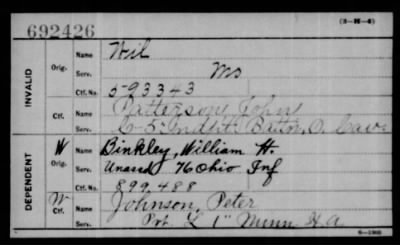 (3-H-4)
692426
INVALID
Orig.
Name Wil
Serv. Mo
Ctf. No. 593343
Ctf.
Name Patterson, John
Serv. L 5" Indpt. Battn, O. Cav.
DEPENDENT
W
Orig.
Name Binkley, William H.
Serv. Unassd 76 Ohio Inf
Ctf. No. 899,488
W
Ctf.
Name Johnson, Peter
Serv. Pvt. L 1" Minn H.A.